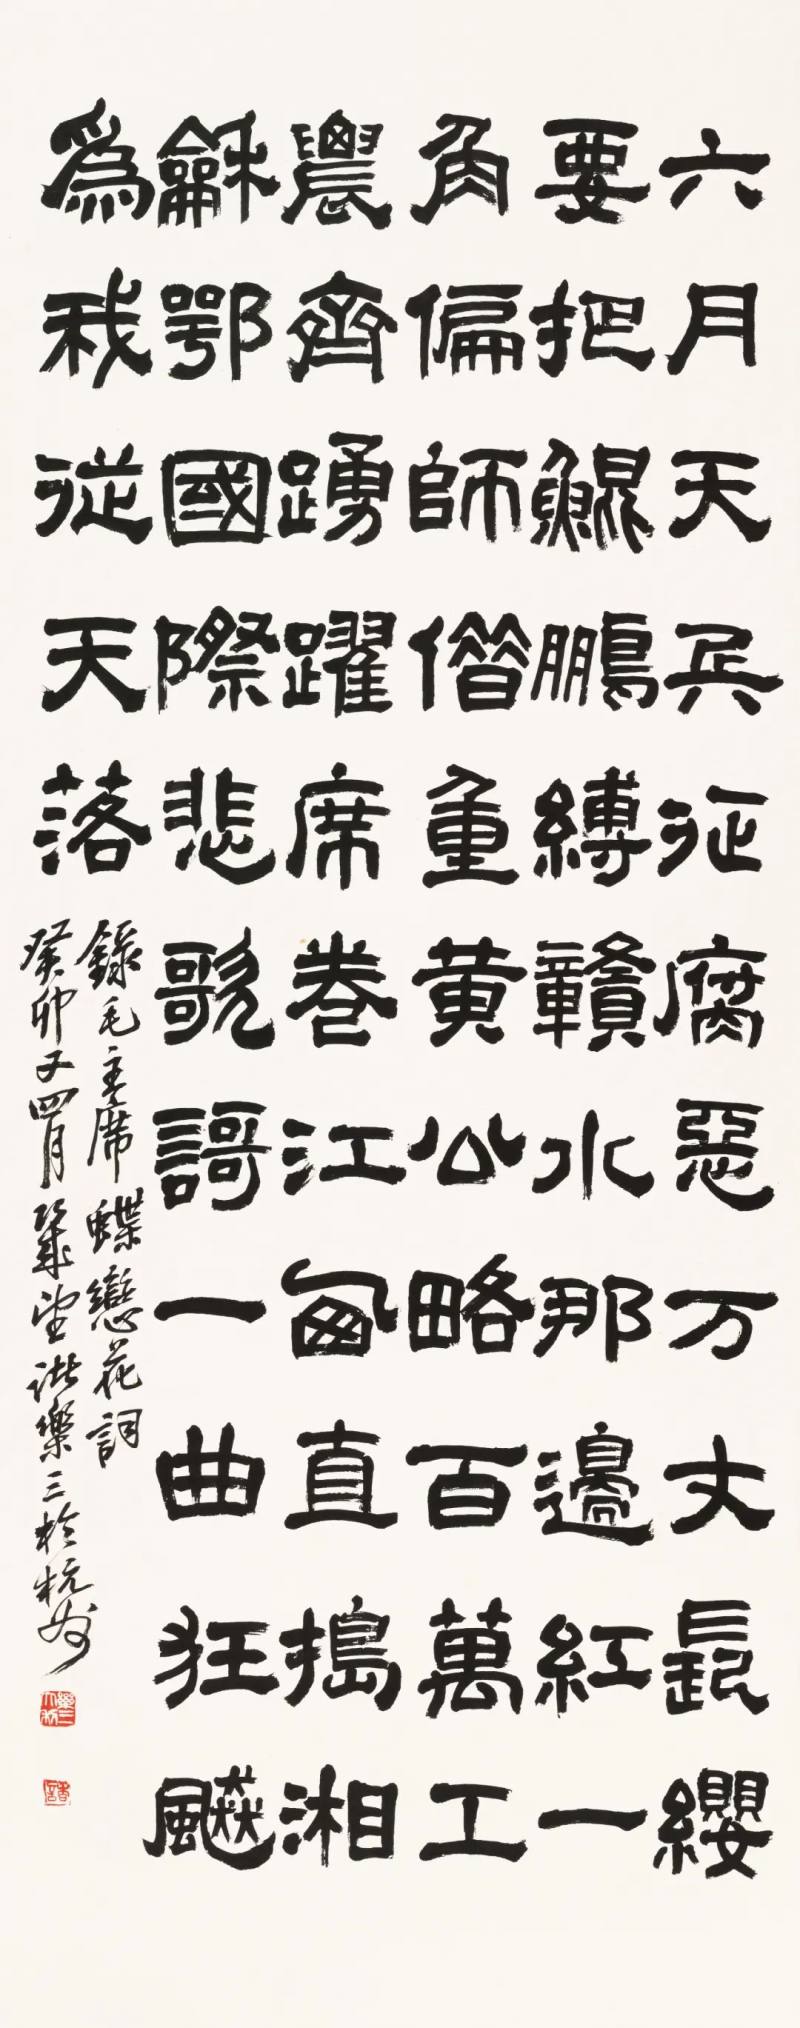 六月天兵征腐惡万丈長纓
要把鯤鵬縛贛水那邊紅一
角偏師借重黄公略百萬工
農齊踴躍席卷江西直搗湘
龢鄂國際悲歌謌一曲狂飇
爲我從天落
録毛主席蝶戀花詞
癸卯又四月幾望諸樂三於杭州